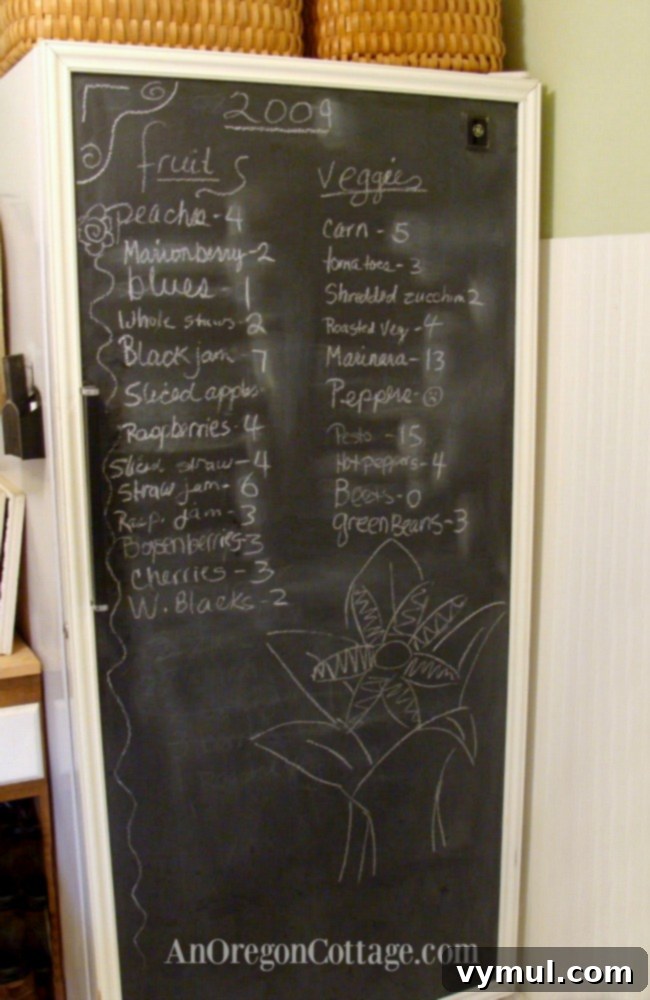 2009
fruits
peaches-4
Marionberry-2
blues-1
Whole straws-2
Black jam-7
Sliced apples-
Raspberries-4
Sliced straw-4
Straw jam-6
Rasp. jam-3
Boysenberries-3
Cherries-3
W. Blacks-2
Veggies
Corn-5
tomatoes-3
Shredded zucchini 2
Roasted Veg-4
Marinara-13
Peppers-
Pesto-15
Hot peppers-4
Beets-0
green Beans-3
AnOregonCottage.com
vymul.com